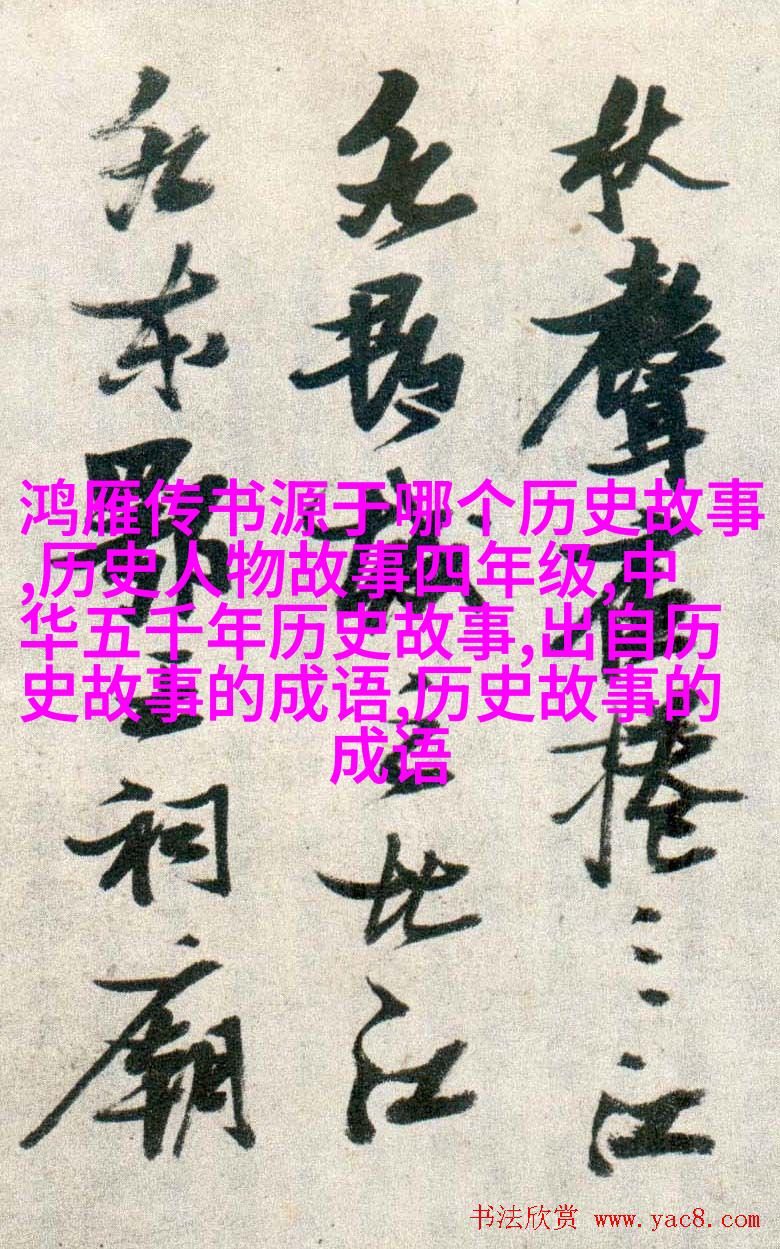 秋聲夜捲三江
北江
東鄂王祠廟
鸿雁传书源于哪个历史故事
,历史人物故事四年级,中
华五千年历史故事,出自历
史故事的成语,历史故事的
成语
书法欣赏 www.yac8.com